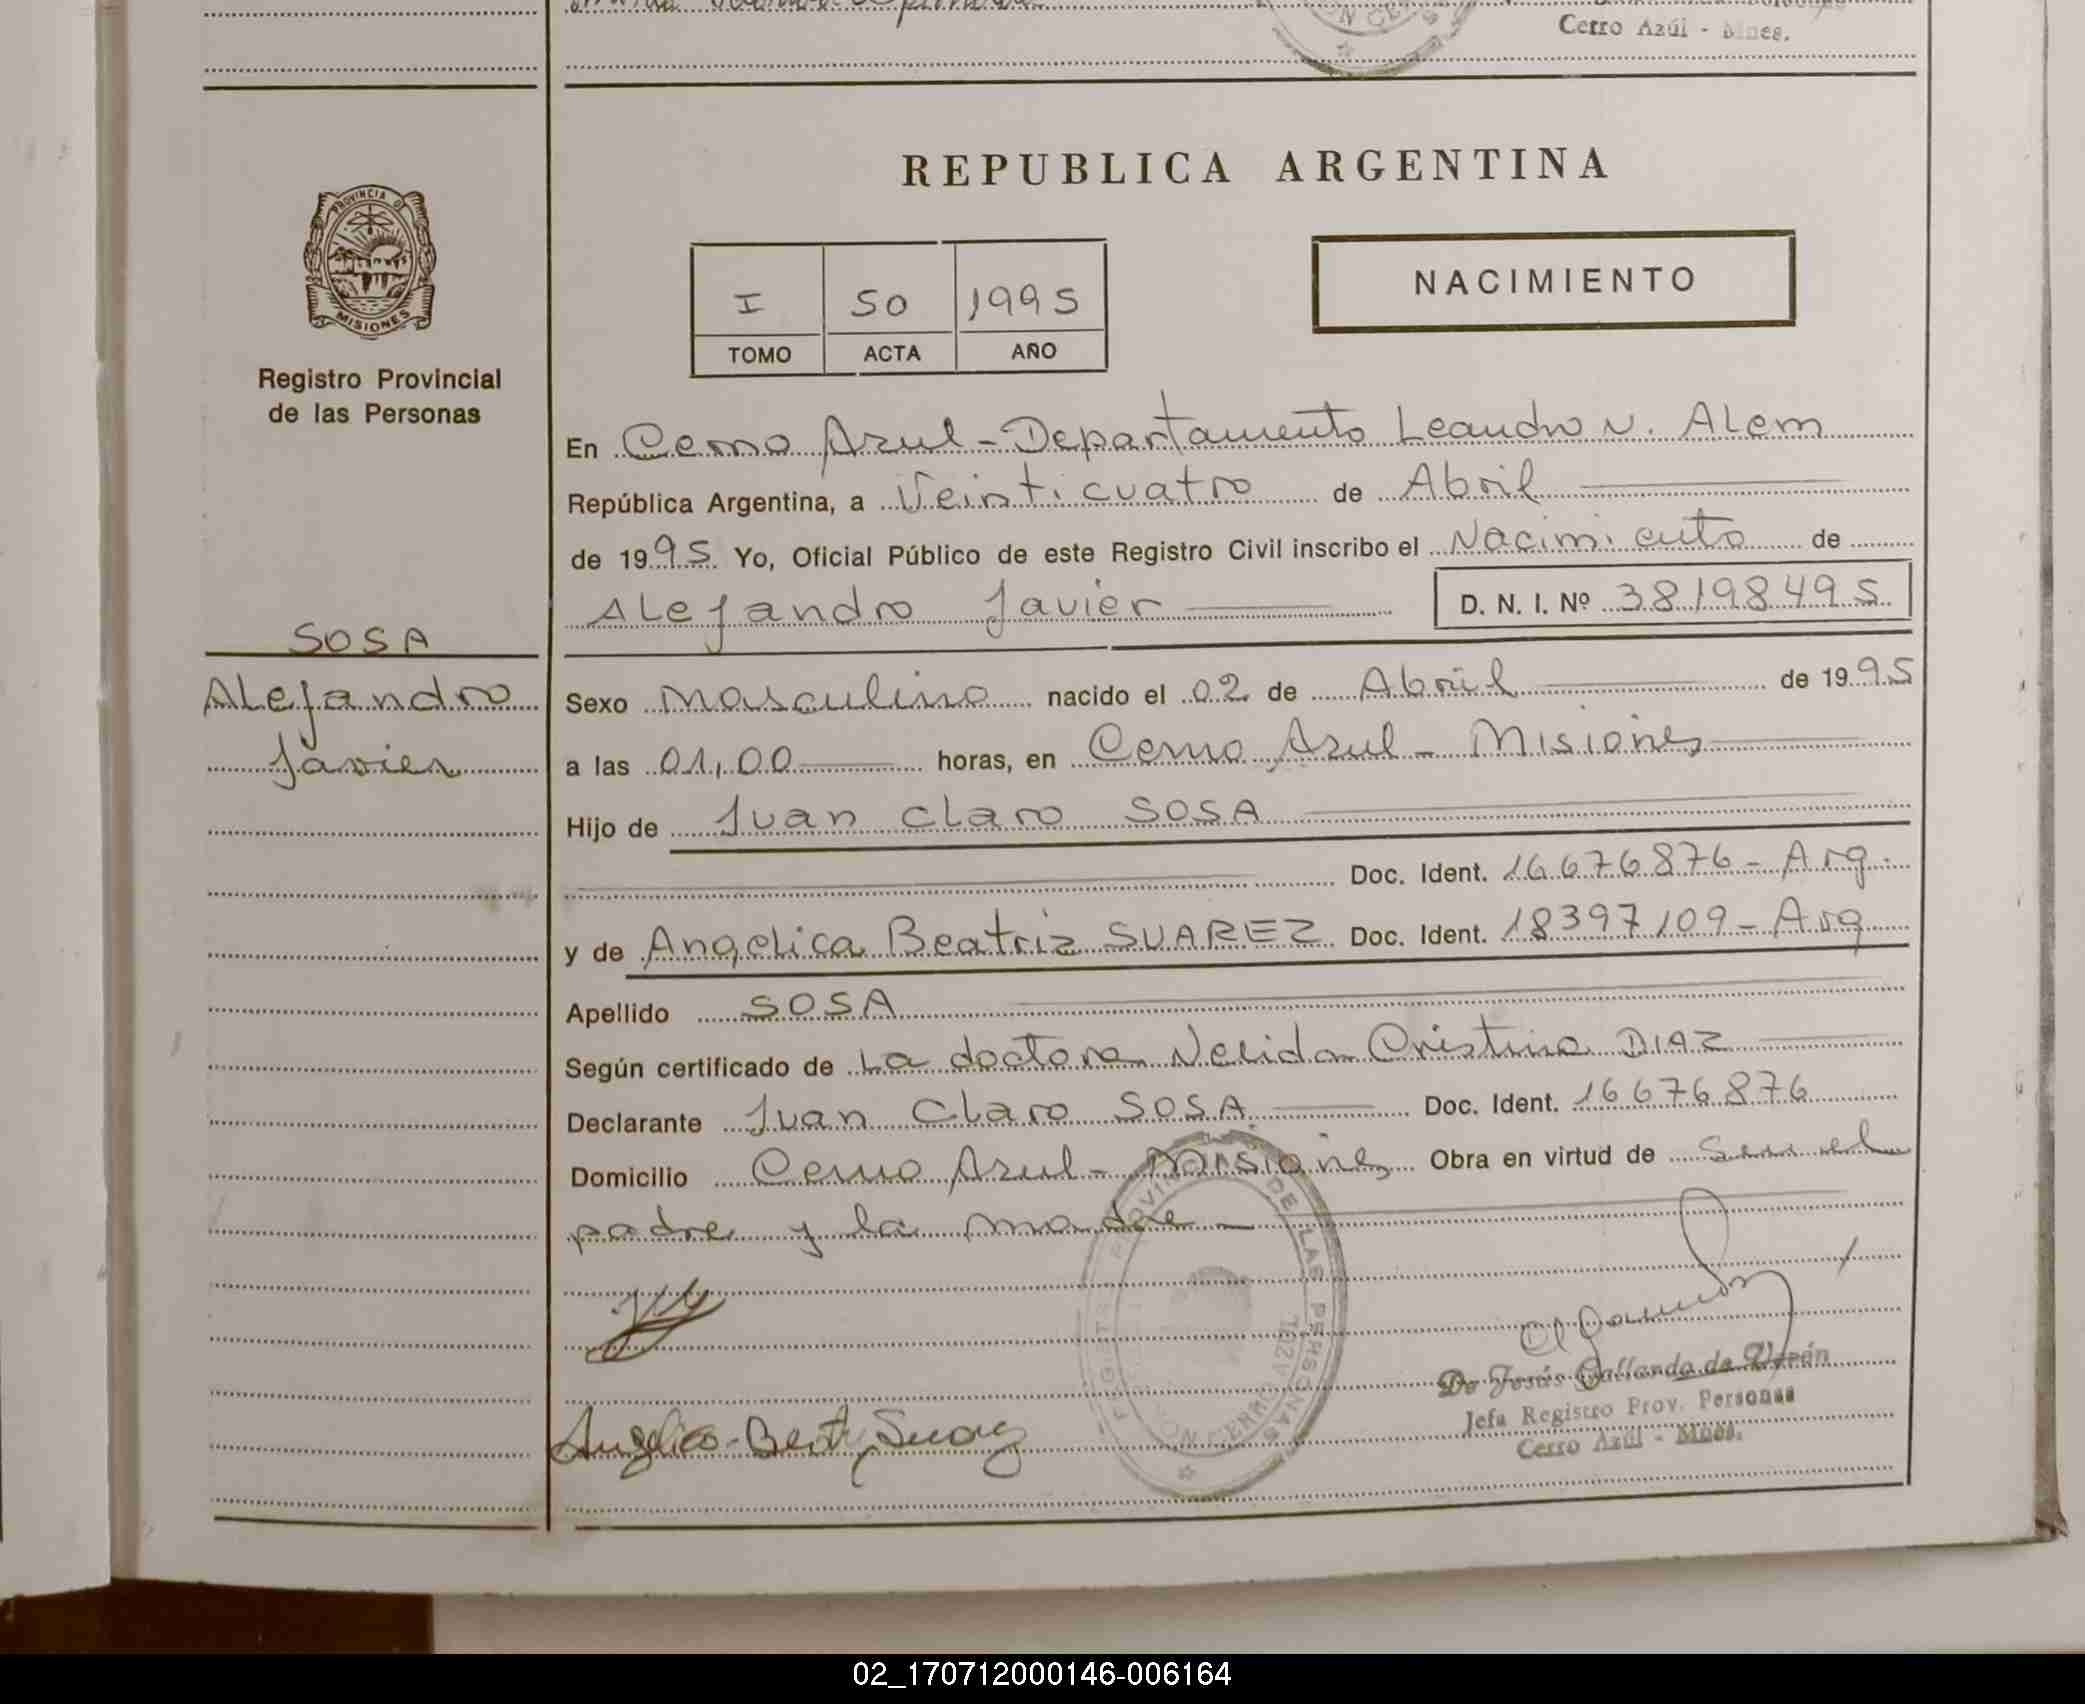 Cerro Azúl - Mnes.
REPUBLICA ARGENTINA
PROVINCIA DE
MISIONES
Registro Provincial
de las Personas
I 50 1995
TOMO ACTA AÑO
NACIMIENTO
En Cerro Azul - Departamento Leandro N. Alem
República Argentina, a Veinticuatro de Abril
de 1995 Yo, Oficial Público de este Registro Civil inscribo el Nacimiento de
Alejandro Javier D. N. I. Nº 38198495
SOSA
Alejandro
Javier
Sexo Masculino nacido el 02 de Abril de 1995
a las 01,00 horas, en Cerro Azul - Misiones
Hijo de Juan Claro SOSA
Doc. Ident. 16676876 - Arg.
y de Angelica Beatriz SUAREZ Doc. Ident. 18397109 - Arg
Apellido SOSA
Según certificado de La doctora Nelida Cristina DIAZ
Declarante Juan Claro SOSA Doc. Ident. 16676876
Domicilio Cerro Azul - Misiones Obra en virtud de
padre y la madre
REGISTRO PROVINCIAL DE LAS PERSONAS
CERRO AZUL
De Jesús Gallardo de
Jefa Registro Prov. Personas
Cerro Azúl - Mnes.
02_170712000146-006164